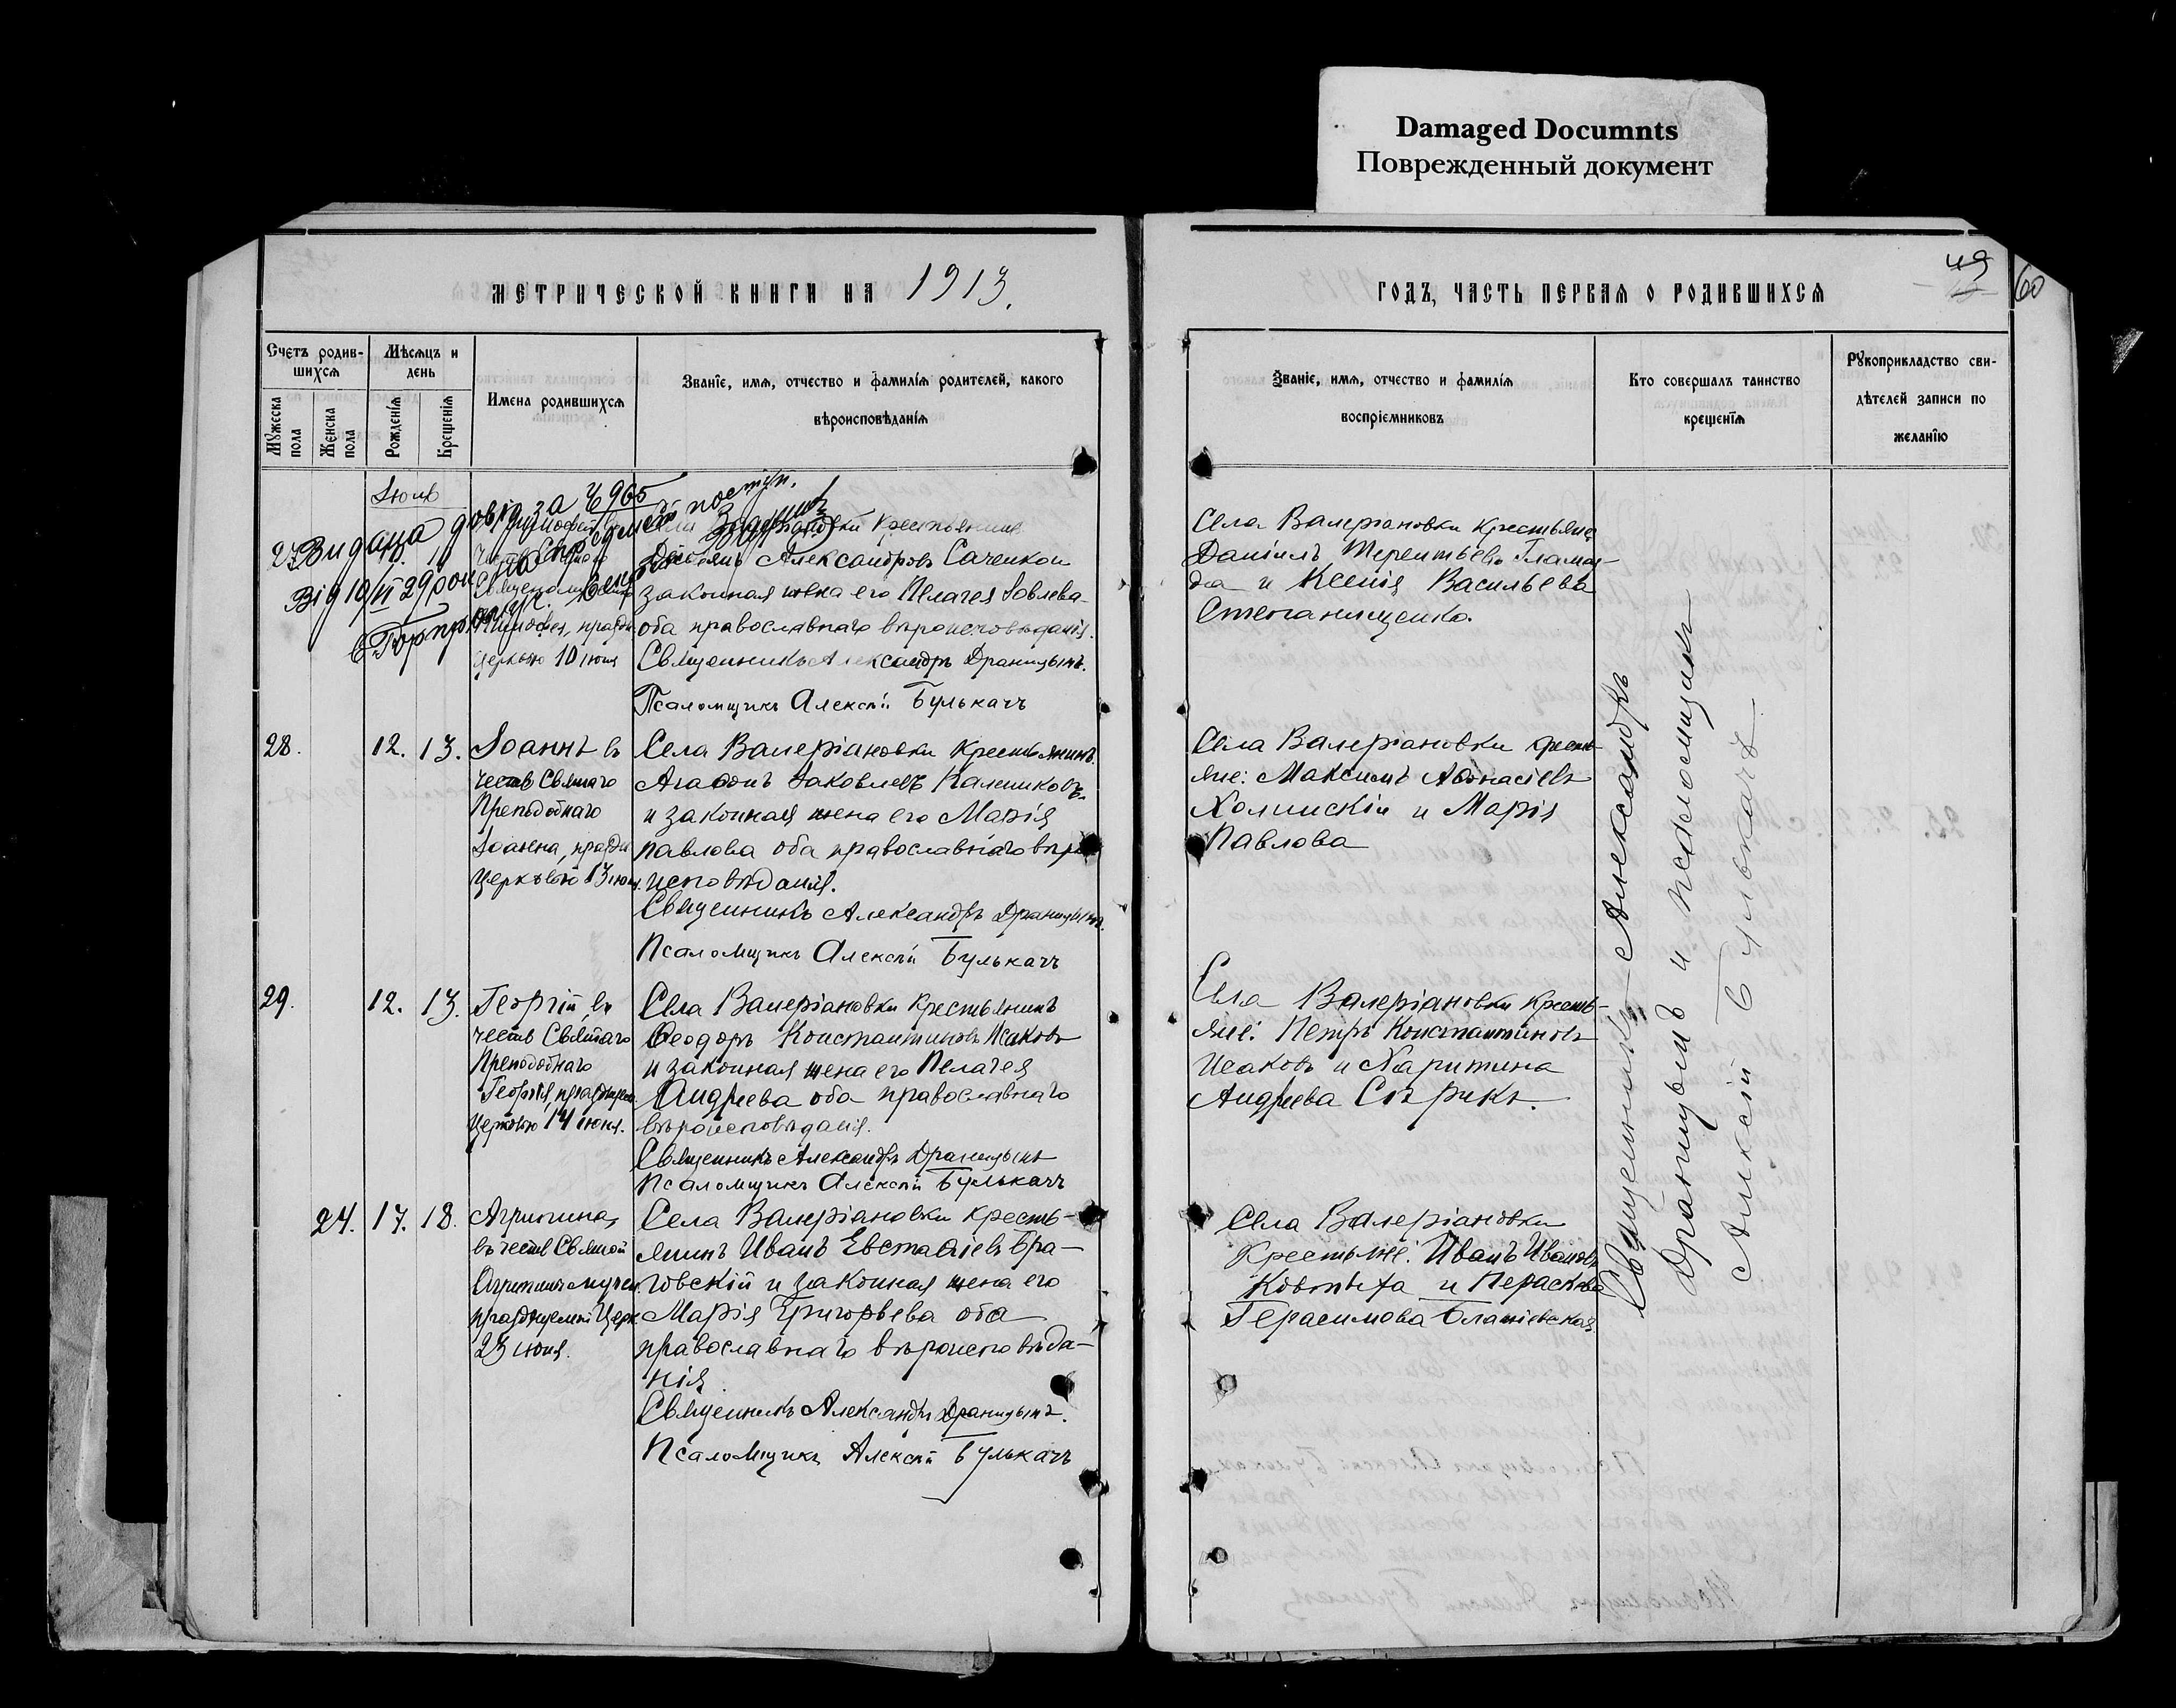 Damaged Documnts
Поврежденный документ
МЕТРИЧЕСКОЙ КНИГИ НА 1913.
ГОДЪ, ЧАСТЬ ПЕРВАЯ О РОДИВШИХСЯ
49
60
Счетъ родив-
шихся
Мужеска
пола
Женска
пола
Мѣсяцъ и
день
Рожденія
Крещенія
Имена родившихся
Званіе, имя, отчество и фамилія родителей, какого
вѣроисповѣданія
Званіе, имя, отчество и фамилія
воспріемниковъ
Кто совершалъ таинство
крещенія
Рукоприкладство сви-
дѣтелей записи по
желанію
Іюнь
Видана довід за № 965
Від 10/VI 29 року
27
Тимофея, праздн.
церковью 10 іюня
Крестьянинъ
Александровъ Саченкои
законная жена его Пелагея Іовлева
оба православнаго вѣроисповѣданія.
Священникъ Александръ Драницынъ.
Псаломщикъ Алексій Булькачъ
Села Валеріановки крестьяне
Даніилъ Терентьевъ Глама-
зда и Ксенія Васильева
Степанищенко.
28. 12. 13.
Іоаннъ въ
честь Святаго
Преподобнаго
Іоанна, праздн.
Церковью 13 іюня.
Села Валеріановки крестьянинъ
Агаѳонъ Іаковлевъ Калениковъ
и законная жена его Марія
Павлова оба православнаго вѣро
исповѣданія.
Священникъ Александръ Драницынъ.
Псаломщикъ Алексій Булькачъ
Села Валеріановки кресть-
яне: Максимъ Аѳанасіевъ
Холминскій и Марія
Павлова
29. 12. 13.
Георгій, въ
честь Святаго
Преподобнаго
Георгія, празднуем.
Церковью 14 іюня.
Села Валеріановки крестьянинъ
Ѳеодоръ Константиновъ Исаковъ
и законная жена его Пелагея
Андреева оба православнаго
вѣроисповѣданія.
Священникъ Александръ Драницынъ
Псаломщикъ Алексій Булькачъ
Села Валеріановки кресть-
яне: Петръ Константиновъ
Исаковъ и Харитина
Андреева Сѣрикъ.
24. 17. 18.
Агрипина,
въ честь Святой
Агрипины мучен.
празднуемой Церк.
23 іюня.
Села Валеріановки кресть-
янинъ Иванъ Евстаѳіевъ Бра-
говскій и законная жена его
Марія Григорьева оба
православнаго вѣроисповѣда-
нія
Священникъ Александръ Драницынъ.
Псаломщикъ Алексій Булькачъ
Села Валеріановки
Крестьяне: Иванъ Ивановъ
Ковтыха и Параскева
Герасимова Блажіевская
Священникъ Александръ
Драницынъ и псаломщикъ
Алексій Булькачъ